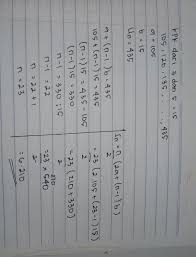 KPK dari 3 dan 5 = 15
105, 120, 135, ..., 435
a = 105
b = 15
Un = 435
a + (n-1) b = 435
105 + (n-1) 15 = 435
(n-1) 15 = 435 - 105
(n-1) 15 = 330
n-1 = 330 : 15
n-1 = 22
n = 22 + 1
n = 23
Sn = n (2a + (n-1) b)
2
= 23 (2.105 + (23-1) 15)
2
= 23 (210 + 330)
2
= 23 x 540
2
= 6.210